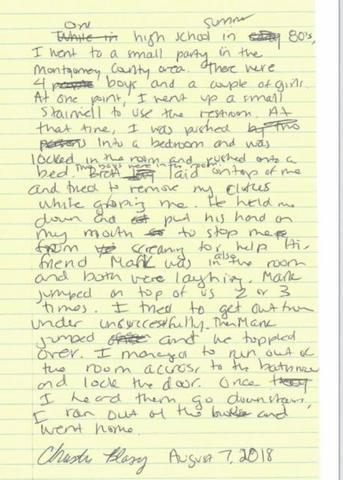 One summer
While in high school in early 80's,
I went to a small party in the
Montgomery County area. There were
4 people boys and a couple of girls.
At one point, I went up a small
stairwell to use the restroom. At
that time, I was pushed by two
into a bedroom and was
locked in the room and pushed onto a
Two boys were in the room.
bed. Brett laid on top of me
and tried to remove my clothes
while groping me. He held me
down and put his hand on
my mouth to stop me
from screaming for help. His
also
friend Mark was in the room
and both were laughing. Mark
jumped on top of us 2 or 3
times. I tried to get out from
under unsuccessfully. Then Mark
jumped and we toppled
over. I managed to run out of
the room across to the bathroom
and lock the door. Once they
I heard them go downstairs,
I ran out of the house and
went home.
August 7, 2018